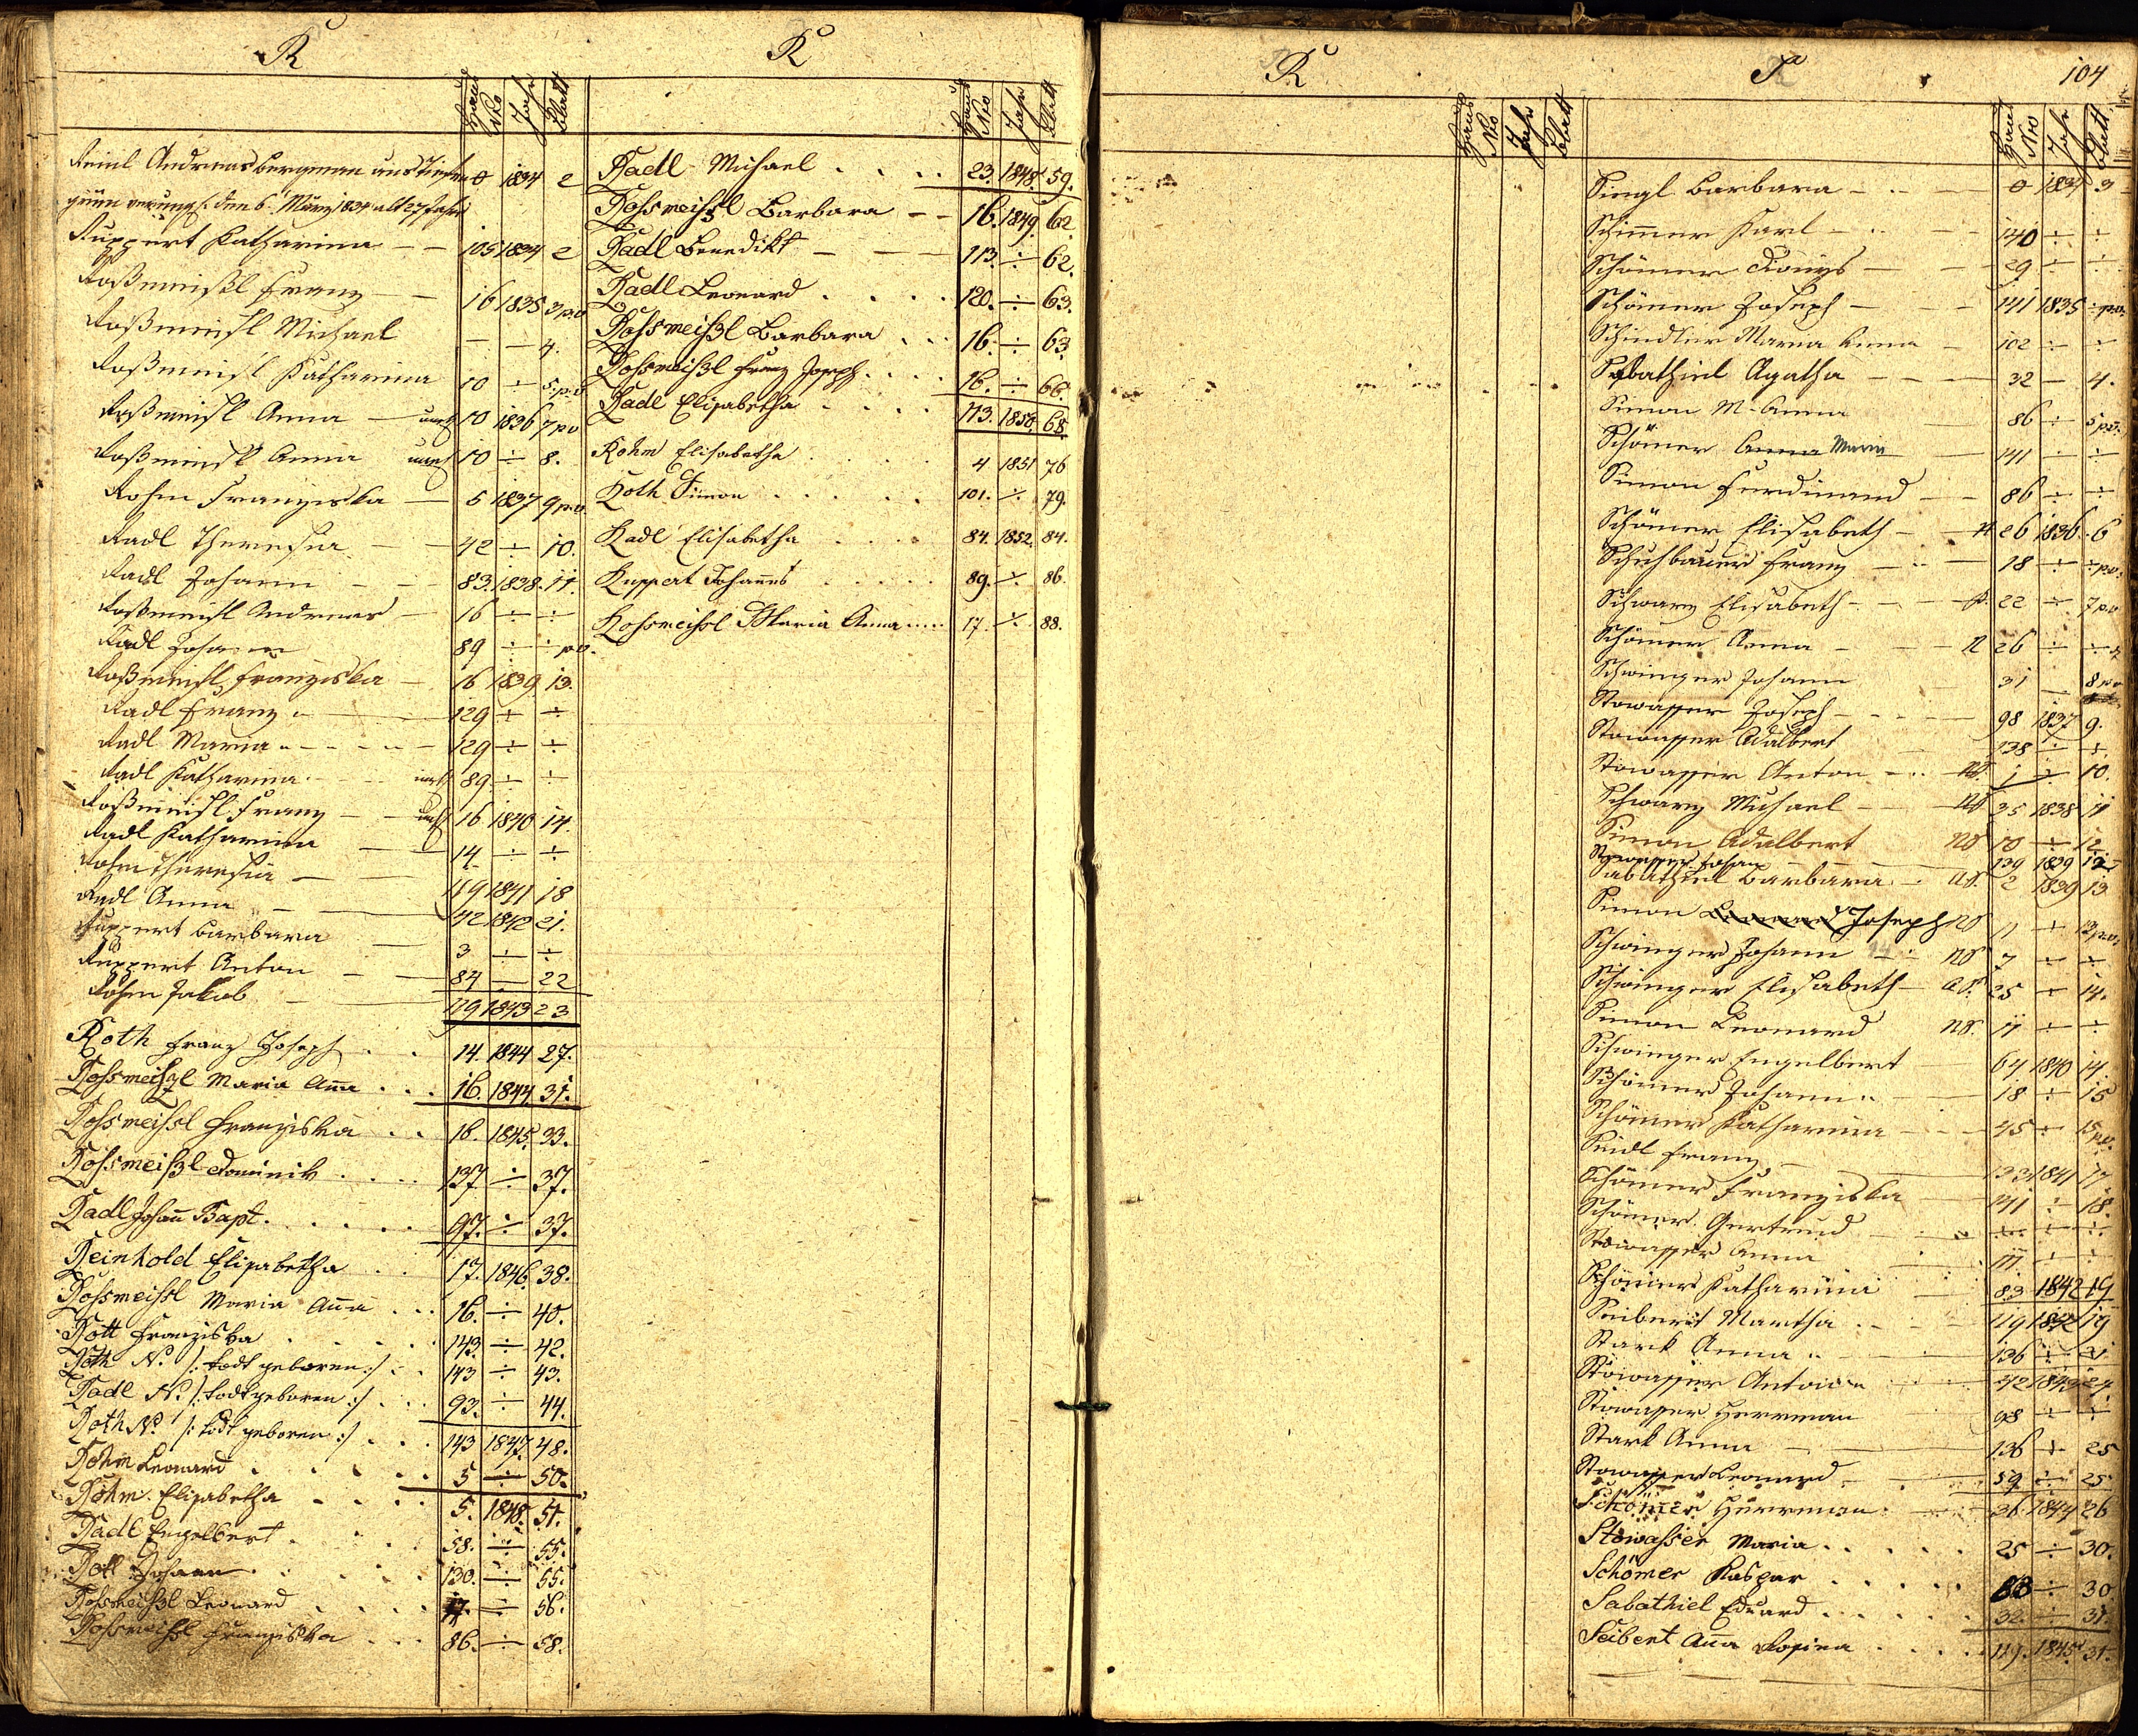 R
Haus Nro Jahr Blatt
Reinl Andreas Bergmann aus Tiefen 0 1834 2
grün verungl. den 6. März 1834 alt 27 Jahre
Ruppert Katharina 105 1834 2
Roßmeißl Franz 16 1835 3 p.v
Roßmeisl Michael — — 4.
Roßmeisl Katharina 10 ÷ 5 p.v
Roßmeisl Anna unehl 10 1836 7 pv
Roßmeisl Anna unehl 10 ÷ 8.
Rohm Franziska 5 1837 9 p.v.
Radl Theresia 42 ÷ 10.
Radl Johann 83. 1838. 11.
Roßmeisl Andreas 16 ÷ ÷
Radl Johann 89 ÷ ÷ pv.
Roßmeisl Franziska 16 1839 13.
Radl Franz 129 ÷ ÷
Radl Maria 129 ÷ ÷
Radl Katharina unehl 89 ÷ ÷
Roßmeisl Franz unehl 16 1840 14.
Radl Katharina 14 ÷ ÷
Rohm Theresia 119 1841 18
Radl Anna 42 1842 21.
Ruppert Barbara 3 ÷ ÷
Ruppert Anton 84 — 22
Rohm Jakob 119 1843 23
Roth Franz Joseph 14. 1844 27.
Rossmeißl Maria Aña 16. 1844. 31.
Rossmeissl Franziska 16. 1845. 33.
Rossmeißl Dominik 137 ÷ 37.
Radl Johañ Bapt. 97. ÷ 37.
Reinhold Elisabetha 17. 1846. 38.
Rossmeissl Maria Aña 16. ÷ 40.
Rott Franziska 143 ÷ 42.
Roth N. /: todt geboren :/ 143 ÷ 43.
Radl N. /: todt geboren :/ 93. ÷ 44.
Roth N. /: todt geboren :/ 143 1847. 48.
Rohm Leonard 5 ÷ 50.
Rohm Elisabetha 5. 1848. 51.
Radl Engelbert 58. ÷ 55.
Rott Johann 130. ÷ 55.
Rossmeißl Leonard ÷ 56.
Rossmeissl Franziska 86. ÷ 58.
R
Haus Nro Jahr Blatt
Radl Michael 23. 1848. 59.
Rossmeißl Barbara 16. 1849. 62.
Radl Benedikt 113. ÷ 62.
Radl Leonard 120. ÷ 63.
Rossmeißl Barbara 16. ÷ 63.
Rossmeißl Franz Joseph 16. ÷ 66.
Radl Elisabetha 113. 1850. 68.
Rohm Elisabetha 4 1851 76
Roth Simon 101. ÷ 79.
Radl Elisabetha 84. 1852. 84.
Ruppert Johanes 89. ÷ 86.
Rossmeissl Maria Anna 17. ÷ 88.
R
Haus Nro Jahr Blatt
S
104
Haus Nro Jahr Blatt
Singl Barbara 0 1834 3
Schimmer Karl 140 ÷ ÷
Schömer 29 ÷ ÷
Schömer Joseph 141 1835 ÷ p.v.
Schindler Maria Anna 102 ÷ ÷
Sabathiel Agatha 32 — 4.
Simon M. Anna 86 ÷ 5 p.v.
Schömer Anna Maria 141 ÷ ÷
Simon Ferdinand 86 ÷ ÷
Schömer Elisabeth 26 1836. 6
Schuhbauer Franz 18 ÷ ÷ p.v.
Schwarz Elisabeth 22 ÷ 7 p.v
Schömer Anna 26 ÷ ÷
Schwinger Johann 31 — 8 p.v
Stowasser Joseph 98 1837 9.
Stowasser Adalbert 138 ÷ ÷
Stowasser Anton NS. 1 ÷ 10.
Schwarz Michael NS 35 1838 11
Simon Adalbert NS 10 ÷ 12
Stowasser Johan 139 1839 12
Sabathiel Barbara AS. 2 1839 13
Simon Leonard Joseph NS 11 ÷ 13 p.v.
Schwinger Johann NS 7 ÷ ÷
Schwinger Elisabeth AS. 25 ÷ 14.
Simon Leonard NS. 11 ÷ ÷
Schwinger Engelbert 64 1840 14.
Schömer Johann 18 ÷ 15
Schömer Katharina 45 ÷ 15 p.v.
Seidl Franz 133 1841 17.
Schömer Franziska 141 ÷ 18.
Schömer Gertrud ÷ ÷ ÷
Stowasser Anna 111 ÷ ÷
Schömer Katharina 83 1842 19
Seibert Martha 119 1842 19
Stark Anna 136 ÷ 21
Stowasser Anton 42 1843 24.
Stowasser Herrman 98 ÷ ÷
Stark Anna 136 ÷ 25
Stowasser Leonard 59 ÷ 25
Schömer Herrman 26 1844 26
Stowasser Maria 25 ÷ 30.
Schömer Kaspar 83 ÷ 30
Sabathiel Eduard 32. ÷ 31.
Seibert Aña Rosina 119. 1845. 31.